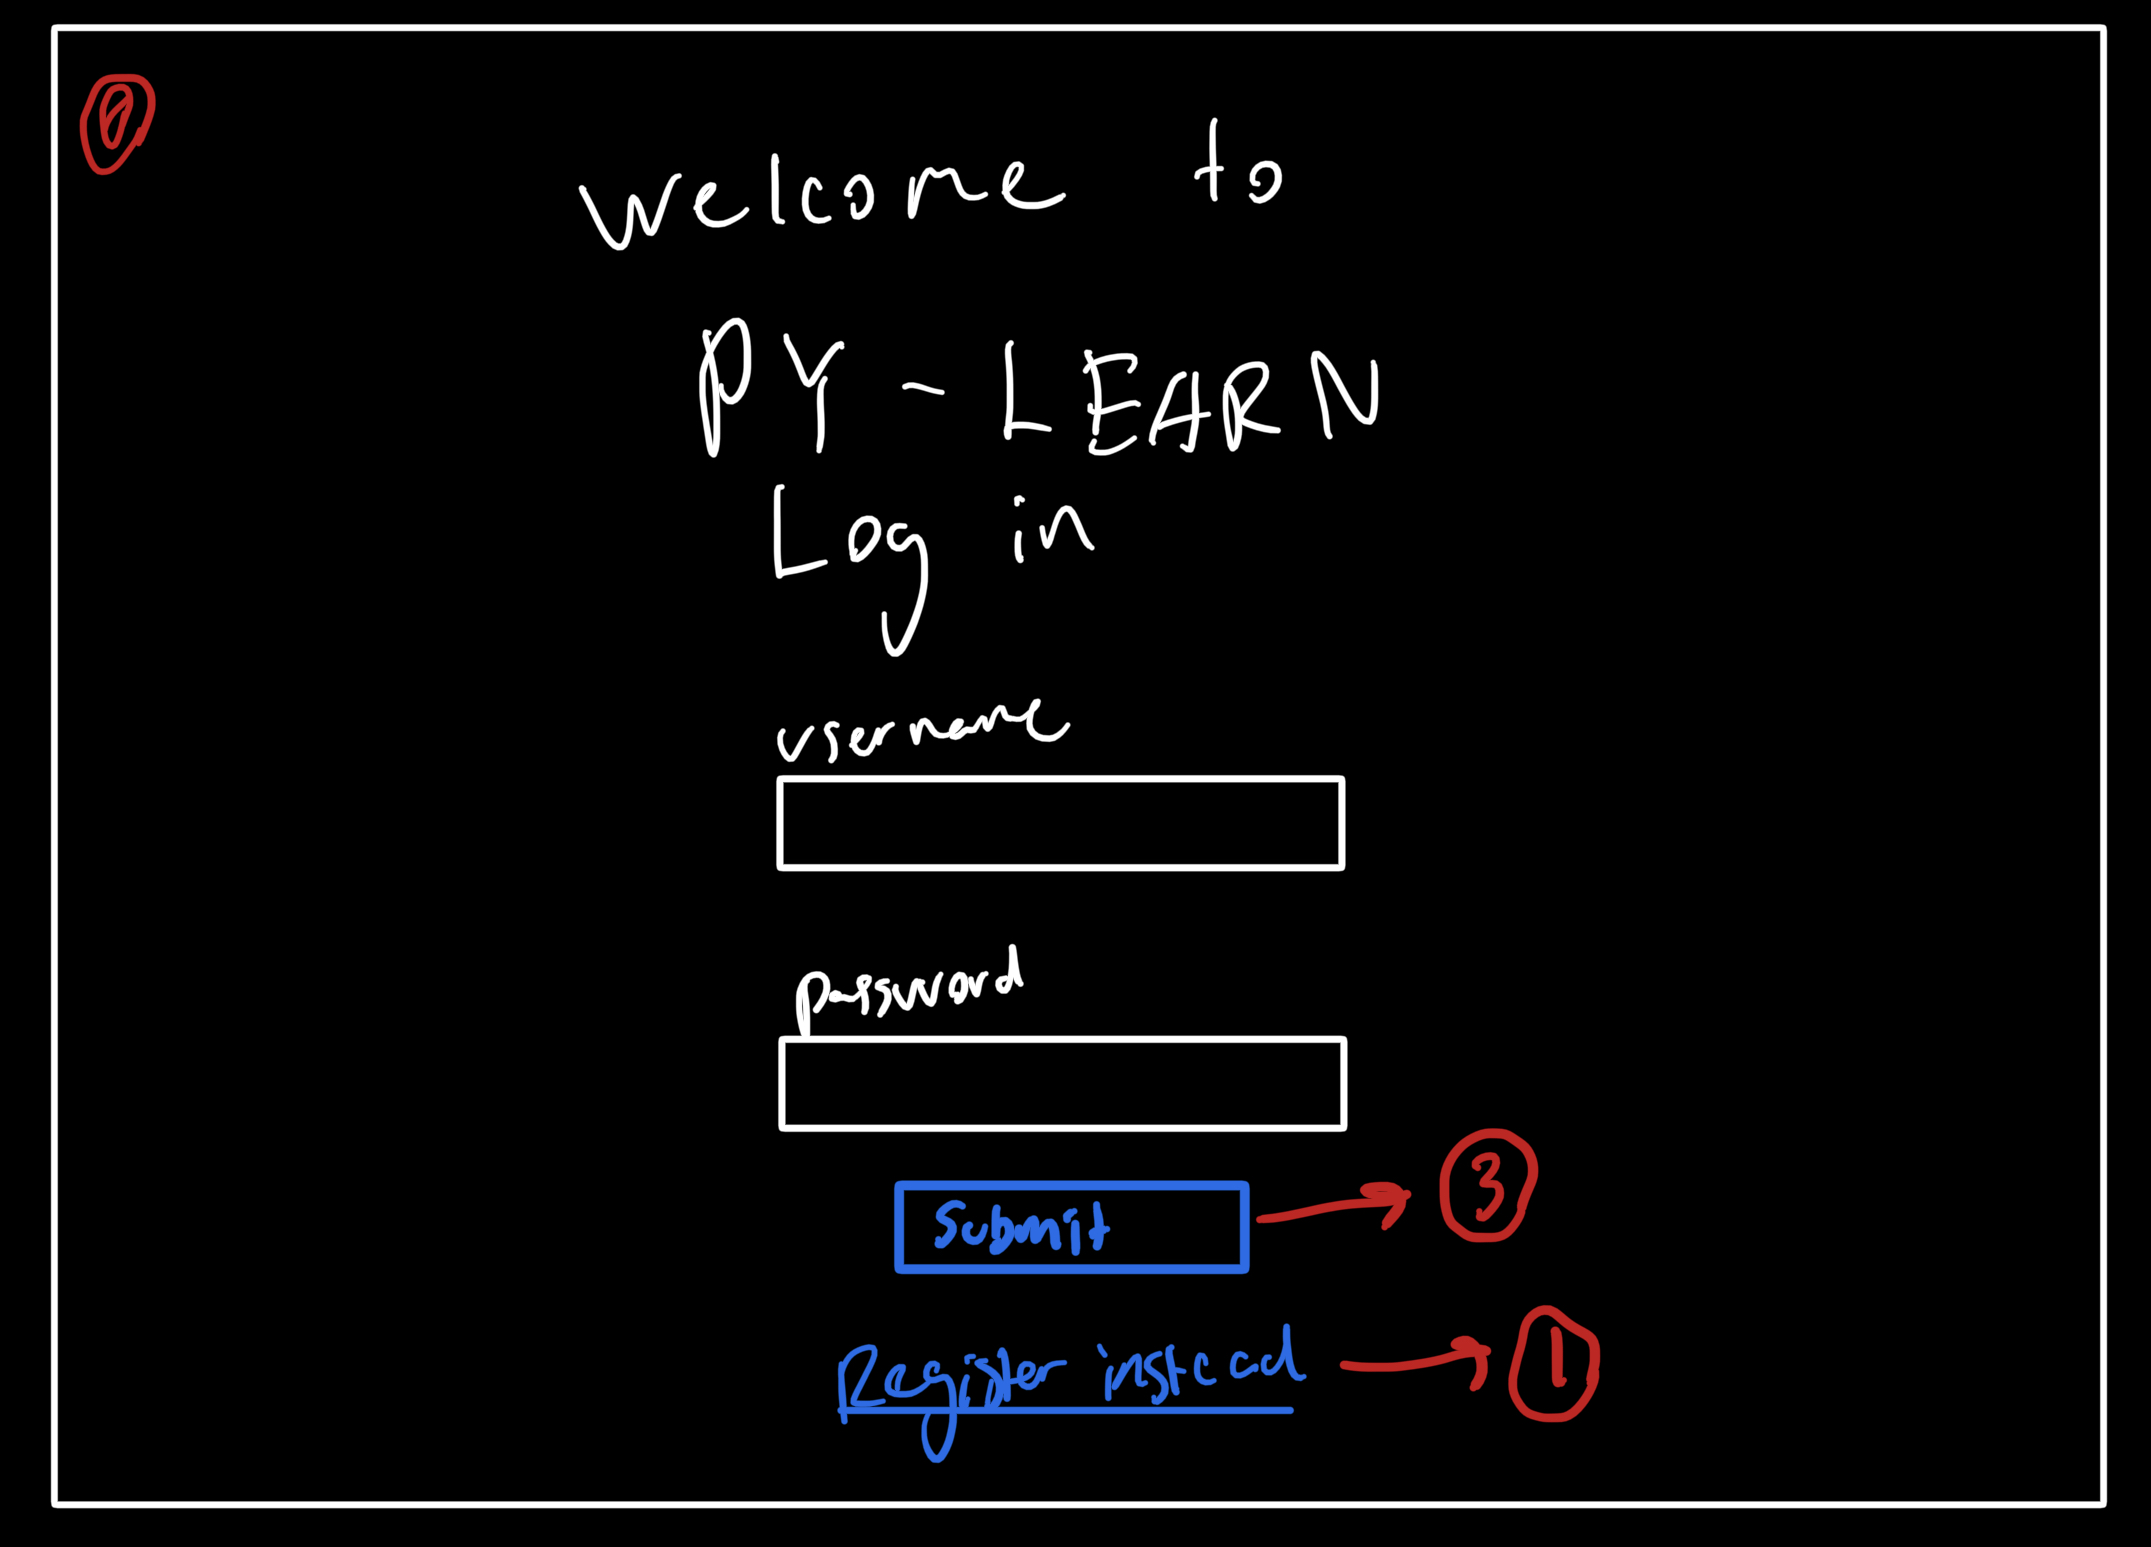 0
welcome to
PY-LEARN
Log in
username
password
Submit
3
Register instead
1